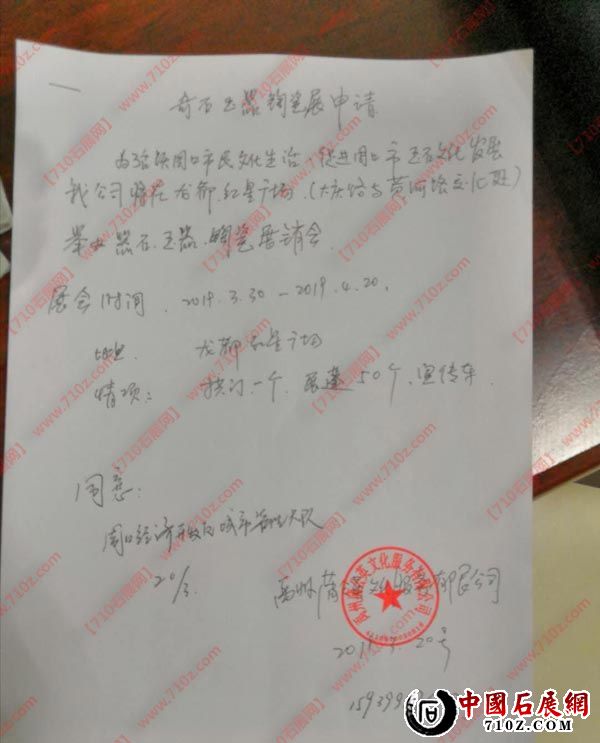 奇石玉器陶瓷展申请
为活跃周口市民文化生活,促进周口市玉石文化发展
我公司将在龙都红星广场.(大庆路与黄河路交汇处)
举办器石.玉器.陶瓷展销会.
展会时间.2019.3.30-2019.4.20.
地点 龙都红星广场
情项: 拱门一个.展蓬50个.宣传车.
同意:
周口经济开发区城市管理大队
20/3.
禹州 文化服务有限公司
20号
【710石展网】www.710z.com
中國石展網
710Z.COM